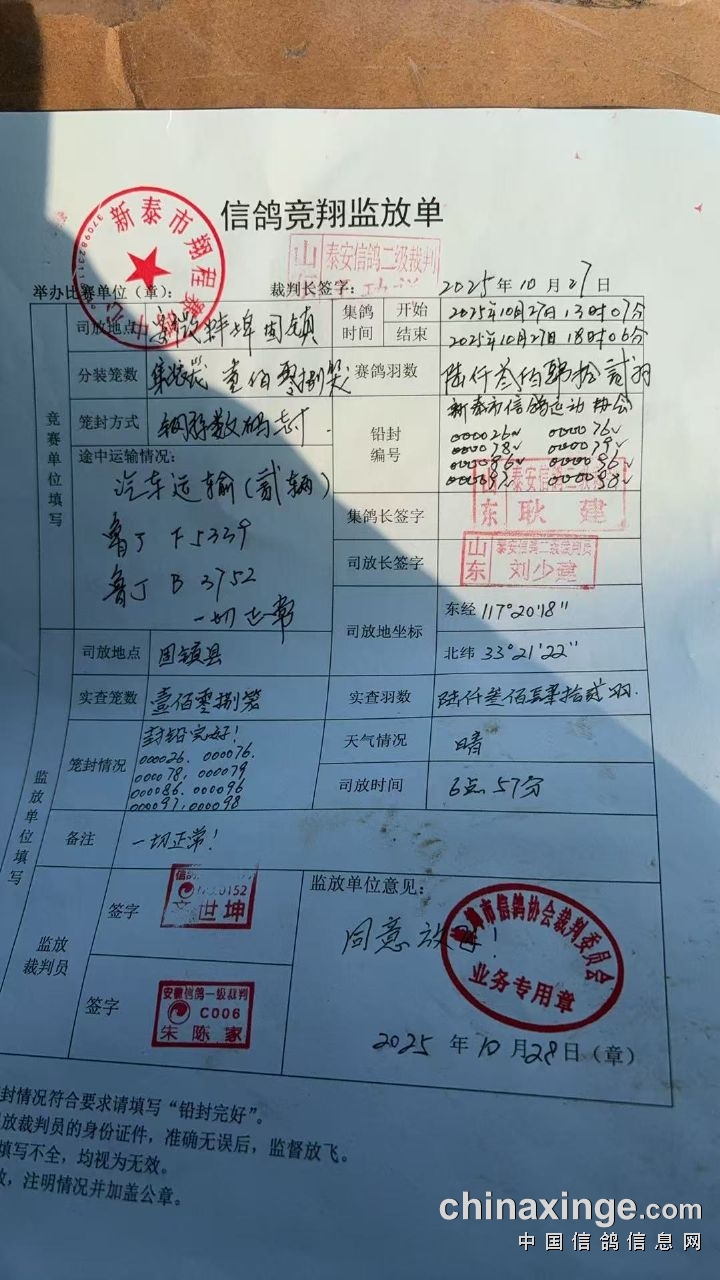 信鸽竞翔监放单
新泰市翔程赛
山 泰安信鸽二级裁判
举办比赛单位（章）： 裁判长签字： 2025年10月27日
竞赛单位填写
司放地点 蚌埠固镇
集鸽时间 开始 2025年10月27日13时07分
结束 2025年10月27日18时06分
分装笼数 壹佰零捌笼
赛鸽羽数 陆仟叁佰 拾贰羽
笼封方式
铅封编号 新泰市信鸽运动协会
000026 000076
000078 000079
000086 000096
000097 000098
途中运输情况：
汽车运输(贰辆)
鲁J F5339
鲁J B 3752
一切正常
集鸽长签字 山东 泰安信鸽二级裁判 耿建
司放长签字 山东 泰安信鸽二级裁判员 刘少建
司放地坐标 东经 117°20'18"
北纬 33°21'22"
监放单位填写
司放地点 固镇县
实查笼数 壹佰零捌笼
实查羽数 陆仟叁佰 拾贰羽.
笼封情况 封铅完好!
000026. 000076.
000078, 000079
000086. 000096
000097, 000098
天气情况 晴
司放时间 6点57分
备注 一切正常!
监放裁判员
签字 0152 世坤
签字 安徽信鸽一级裁判 C006 朱陈家
监放单位意见：
同意放
市信鸽协会裁判委员会
业务专用章
2025年10月28日（章）
封情况符合要求请填写“铅封完好”。
放裁判员的身份证件，准确无误后，监督放飞。
填写不全，均视为无效。
，注明情况并加盖公章。
chinaxinge.com
中国信鸽信息网